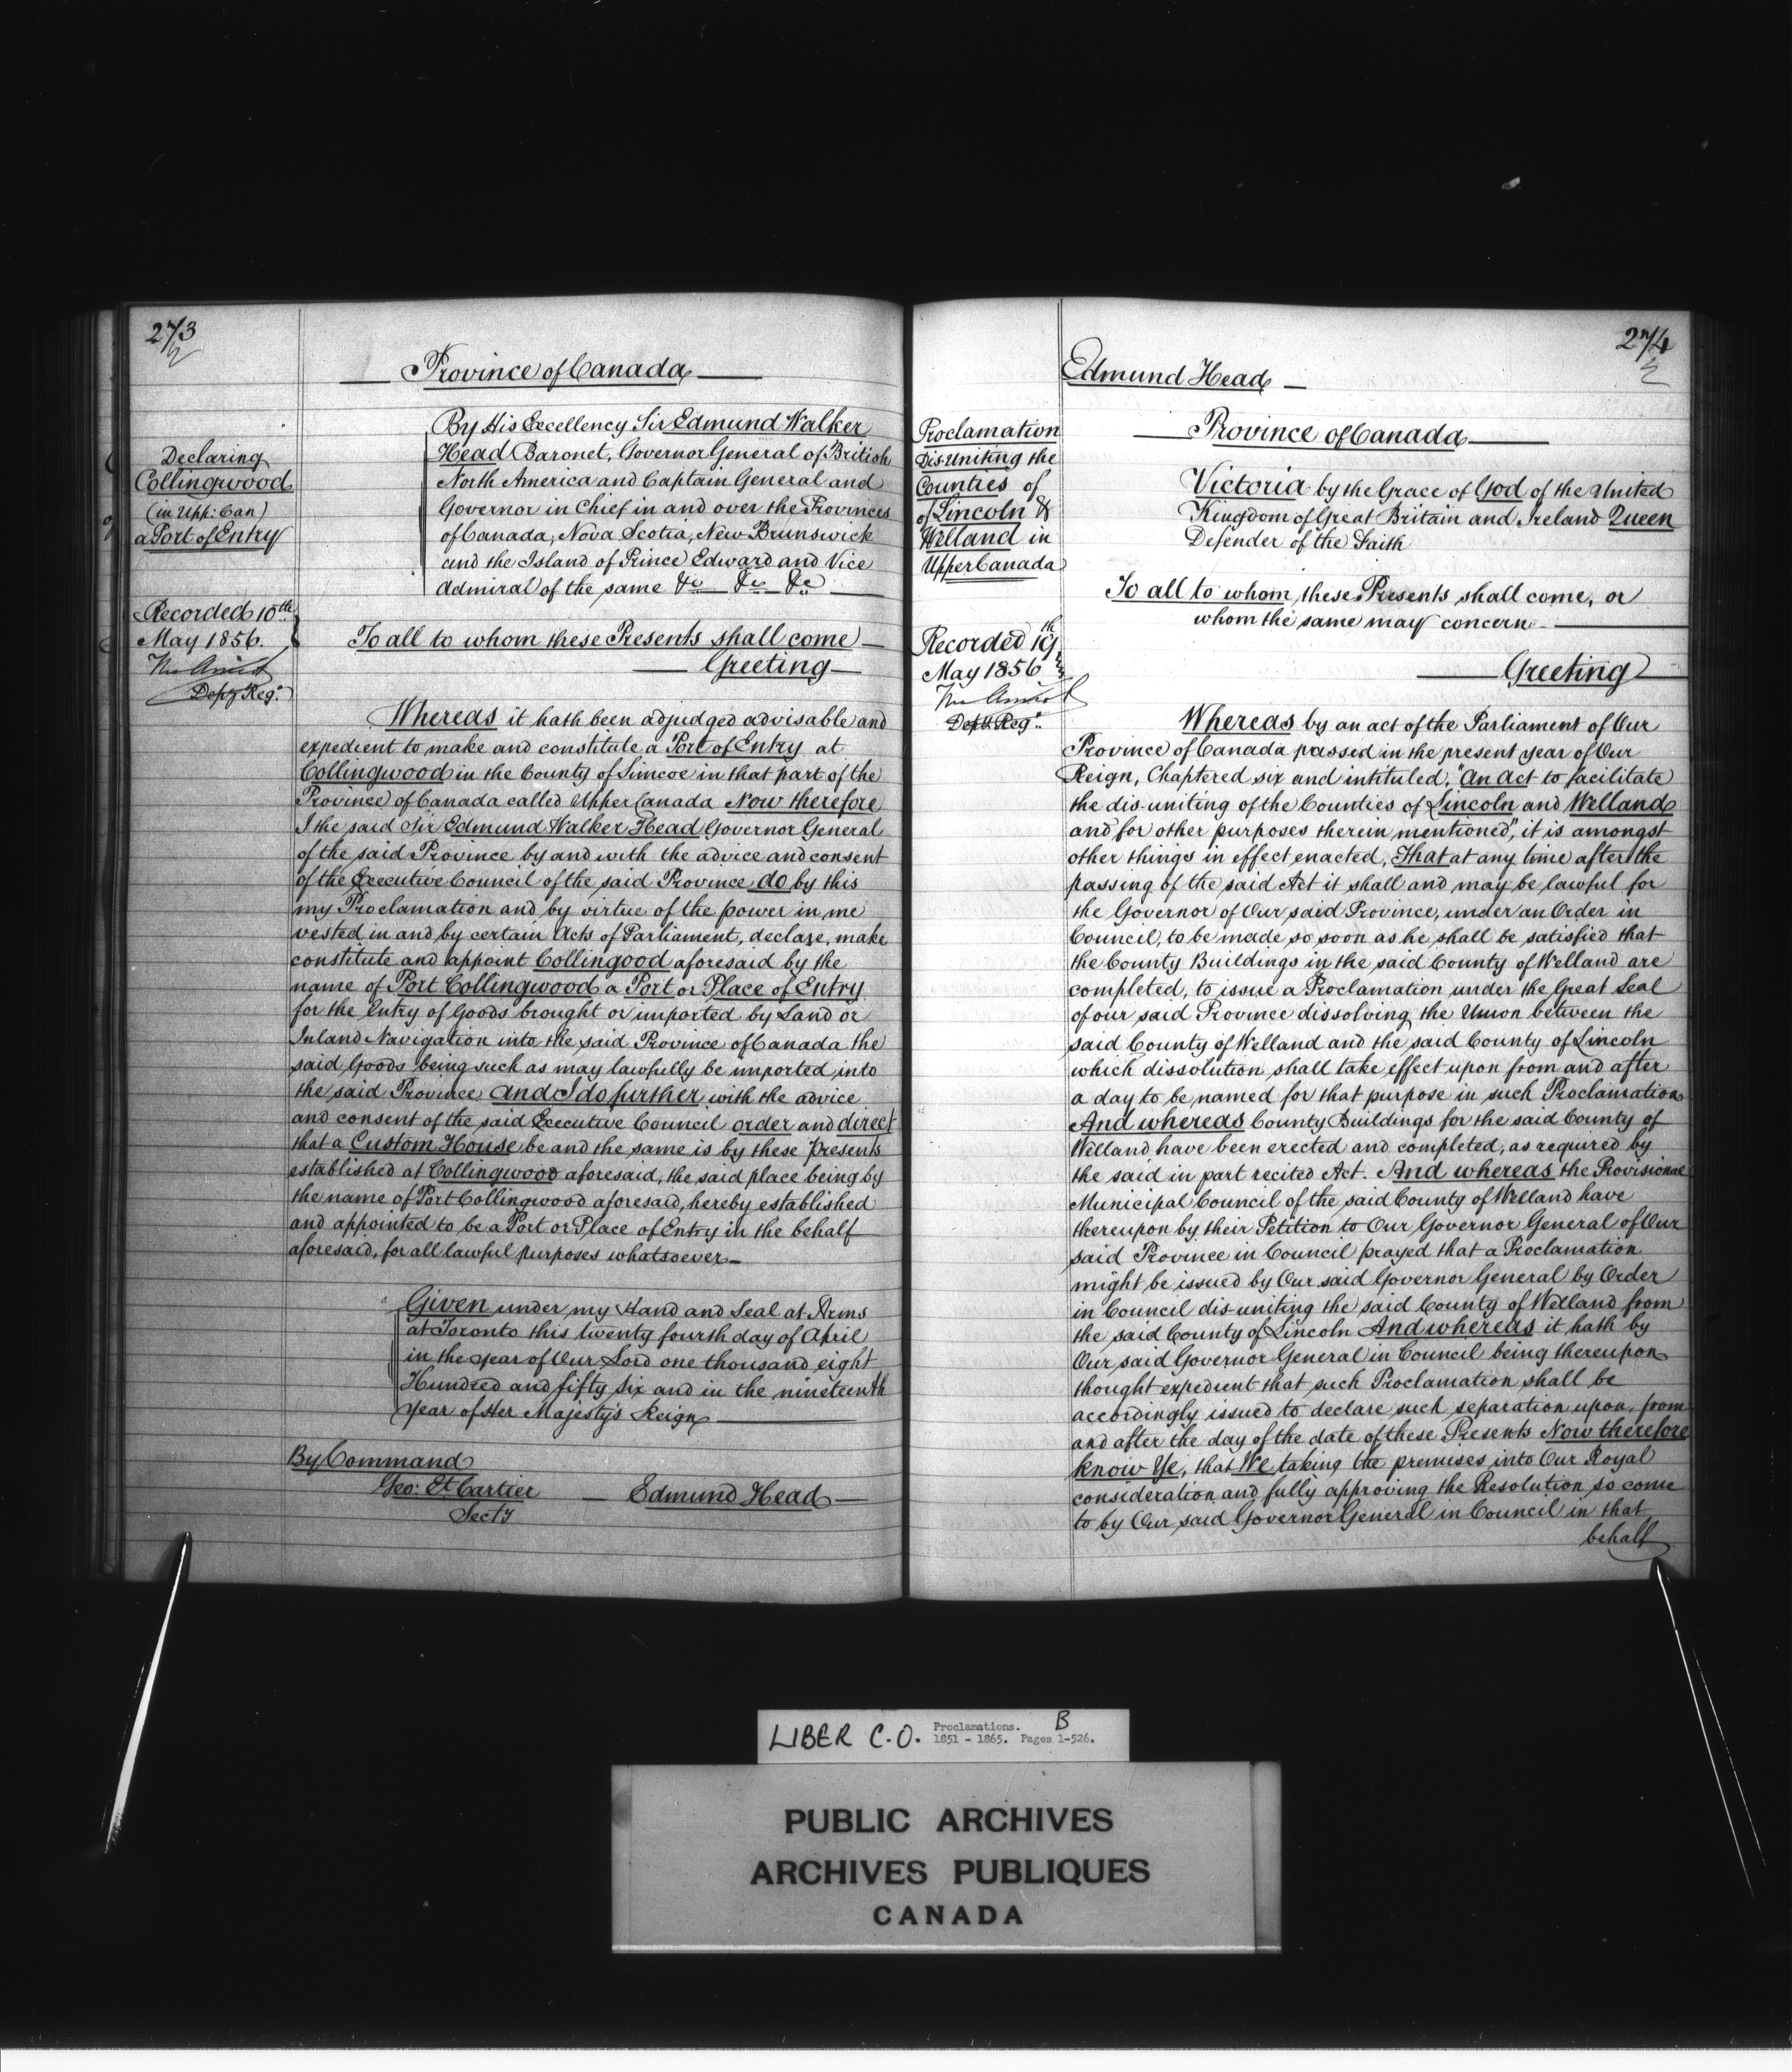 273
Province of Canada
Declaring
Collingwood
(in Upp: Can)
a Port of Entry
Recorded 10th
May 1856.
Depy Regr.
By His Excellency Sir Edmund Walker
Head Baronet, Governor General of British
North America and Captain General and
Governor in Chief in and over the Provinces
of Canada, Nova Scotia, New Brunswick
and the Island of Prince Edward and Vice
Admiral of the same &c &c &c
To all to whom these Presents shall come
Greeting
Whereas it hath been adjudged advisable and
expedient to make and constitute a Port of Entry at
Collingwood in the County of Simcoe in that part of the
Province of Canada called Upper Canada Now therefore
I the said Sir Edmund Walker Head Governor General
of the said Province by and with the advice and consent
of the Executive Council of the said Province do by this
my Proclamation and by virtue of the power in me
vested in and by certain Acts of Parliament, declare, make
constitute and appoint Collingood aforesaid by the
name of Port Collingwood a Port or Place of Entry
for the Entry of Goods brought or imported by Land or
Inland Navigation into the said Province of Canada the
said Goods being such as may lawfully be imported into
the said Province and I do further with the advice
and consent of the said Executive Council order and direct
that a Custom House be and the same is by these Presents
established at Collingwood aforesaid, the said place being by
the name of Port Collingwood aforesaid, hereby established
and appointed to be a Port or Place of Entry in the behalf
aforesaid, for all lawful purposes whatsoever
Given under my Hand and Seal at Arms
at Toronto this twenty fourth day of April
in the year of Our Lord one thousand eight
Hundred and fifty six and in the nineteenth
year of Her Majesty's Reign
By Command
Geo: Et Cartier
Secty
Edmund Head
274
Edmund Head
Proclamation
Dis-Uniting the
Counties of
of Lincoln &
Welland in
Upper Canada
Recorded 19th
May 1856
Depy Regr.
Province of Canada
Victoria by the Grace of God of the United
Kingdom of Great Britain and Ireland Queen
Defender of the Faith
To all to whom these Presents shall come, or
whom the same may concern
Greeting
Whereas by an act of the Parliament of Our
Province of Canada passed in the present year of Our
Reign, Chaptered six and intituled, "An Act to facilitate
the dis-uniting of the Counties of Lincoln and Welland
and for other purposes therein mentioned", it is amongst
other things in effect enacted, That at any time after the
passing of the said Act it shall and may be lawful for
the Governor of Our said Province, under an Order in
Council, to be made so soon as he shall be satisfied that
the County Buildings in the said County of Welland are
completed, to issue a Proclamation under the Great Seal
of our said Province dissolving the Union between the
said County of Welland and the said County of Lincoln
which dissolution shall take effect upon from and after
a day to be named for that purpose in such Proclamation
And whereas County Buildings for the said County of
Welland have been erected and completed, as required by
the said in part recited Act. And whereas the Provisional
Municipal Council of the said County of Welland have
thereupon by their Petition to Our Governor General of Our
said Province in Council prayed that a Proclamation
might be issued by Our said Governor General by Order
in Council dis-uniting the said County of Welland from
the said County of Lincoln And whereas it hath by
Our said Governor General in Council being thereupon
thought expedient that such Proclamation shall be
accordingly issued to declare such separation upon, from
and after the day of the date of these Presents Now therefore
know Ye, that We taking the premises into Our Royal
consideration and fully approving the Resolution so come
to by Our said Governor General in Council in that
behalf
LIBER C.O. Proclamations. B
1851 - 1865. Pages 1-526.
PUBLIC ARCHIVES
ARCHIVES PUBLIQUES
CANADA